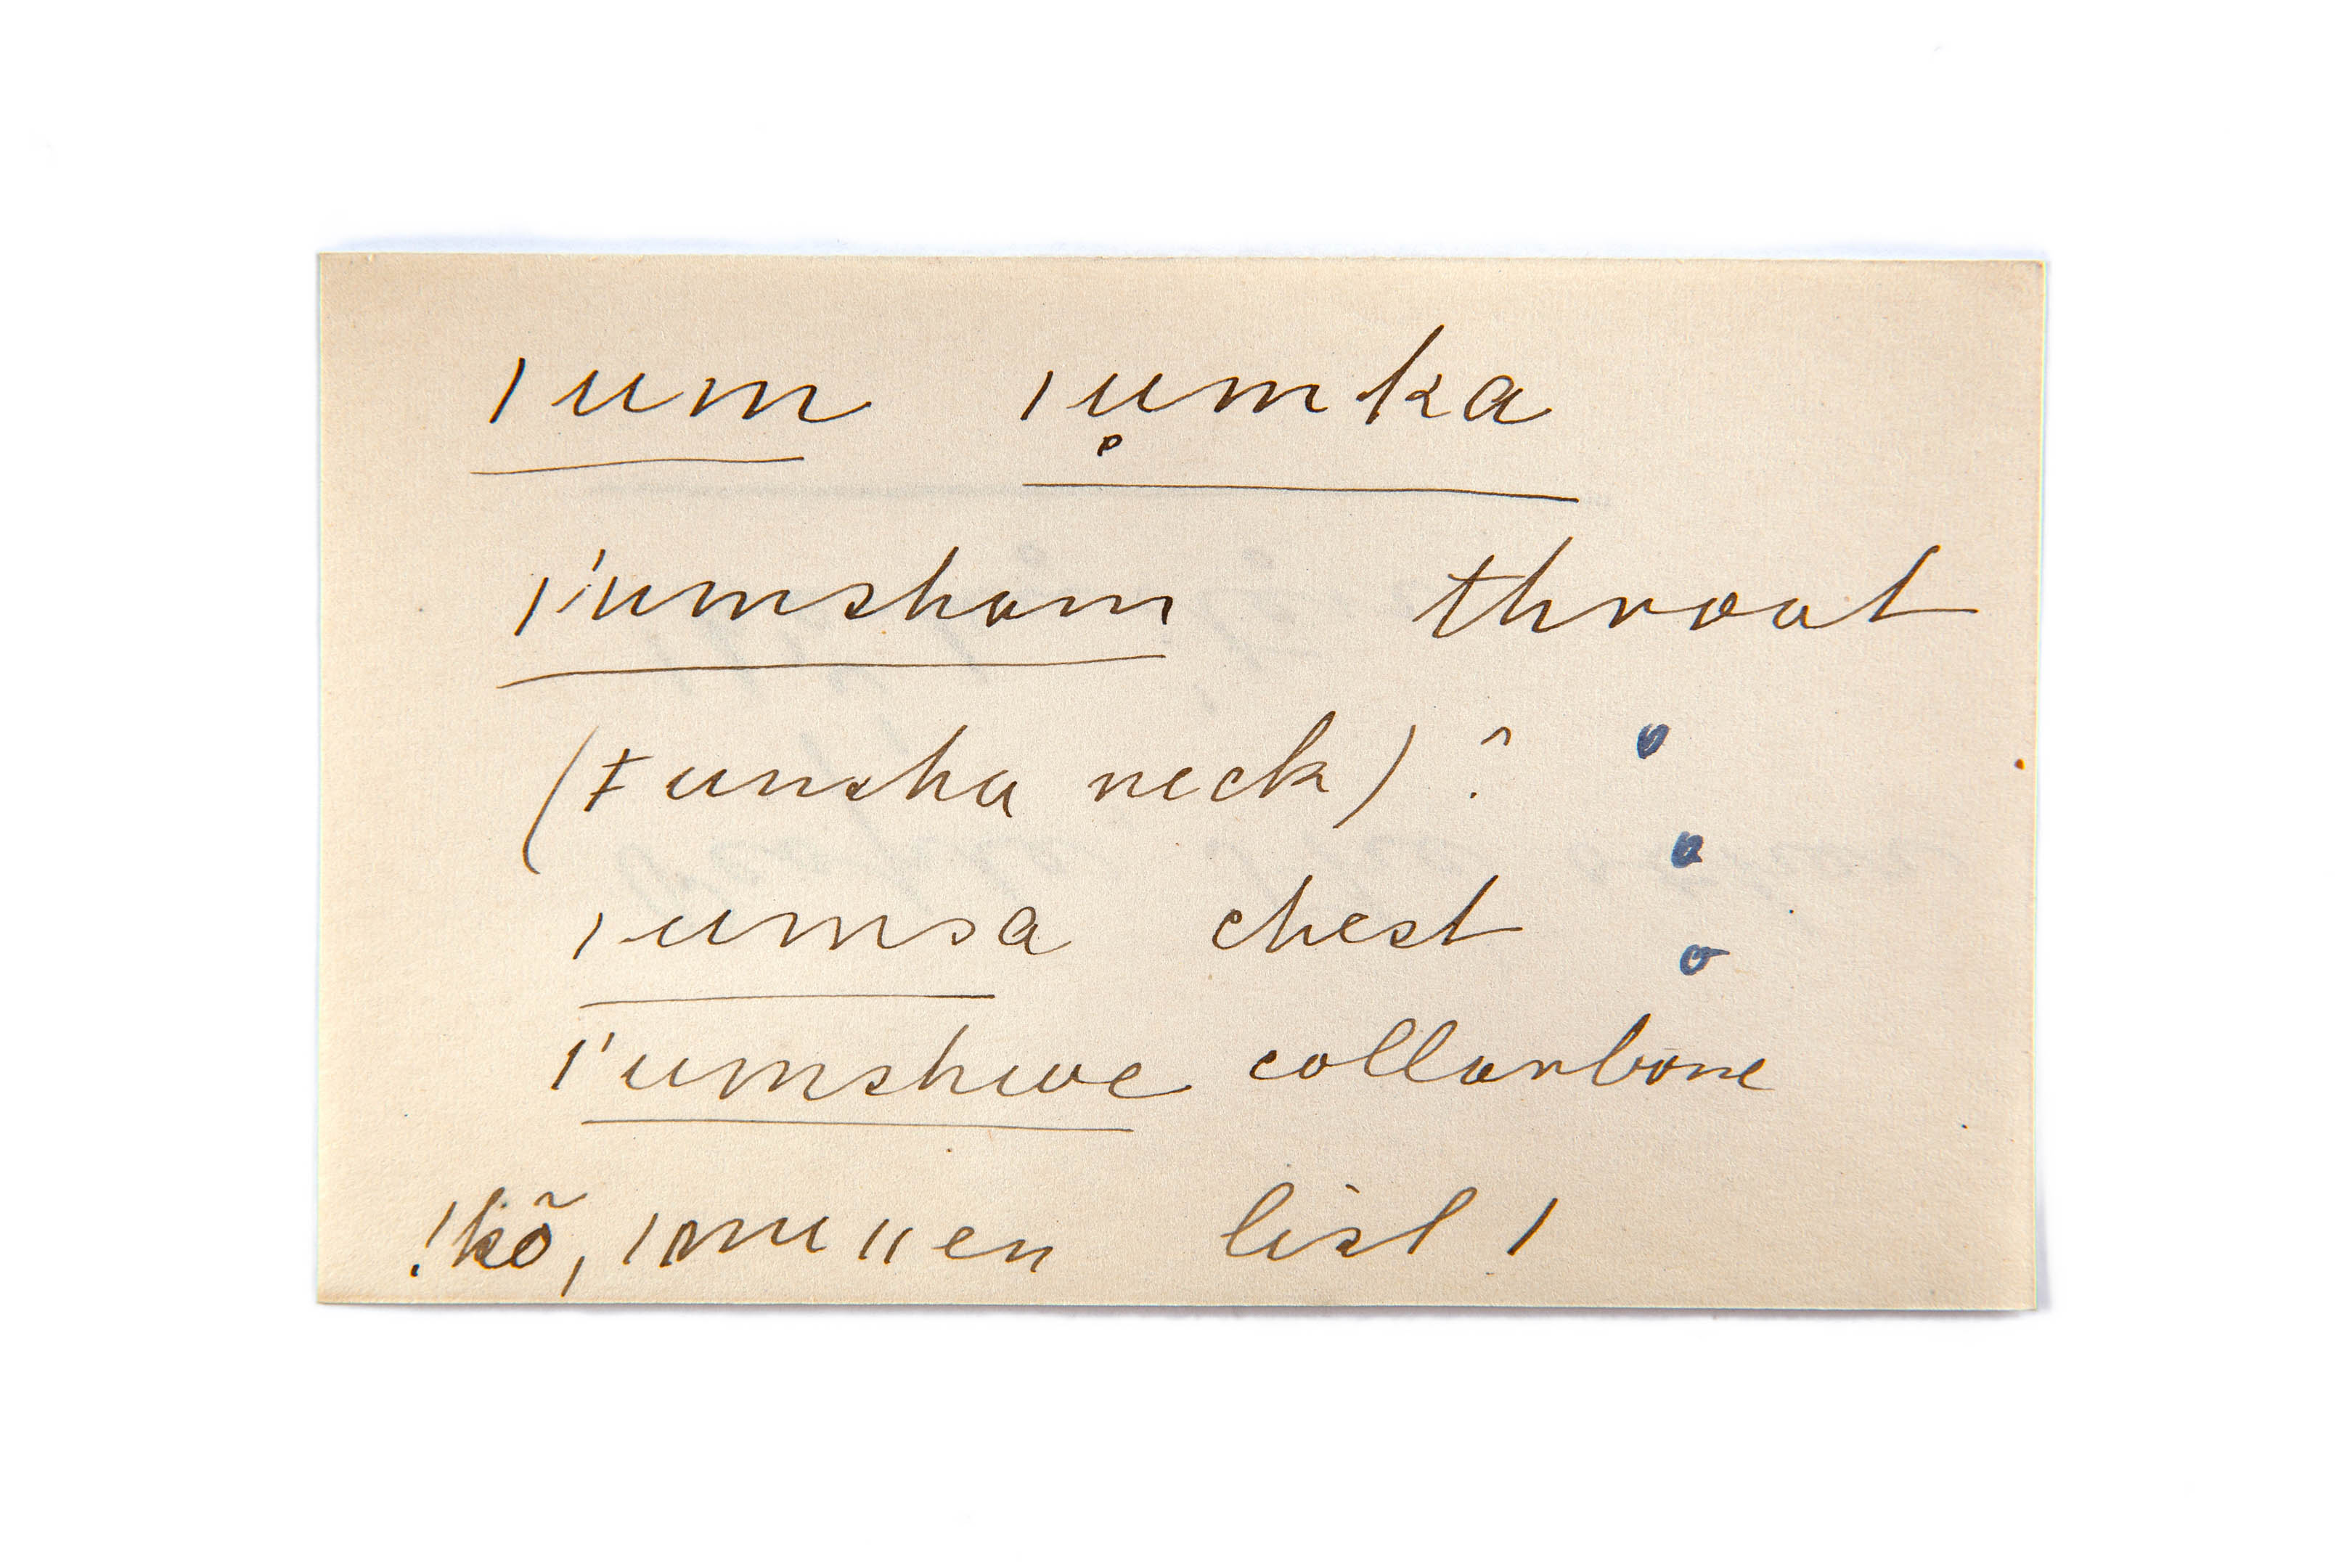 ǀum ǀu̥mka
ǀ'umsham throat
(ǂunsha neck) ?
ǀumsa chest
ǀ'umshwe collarbone
!kõ, ǁen list 1